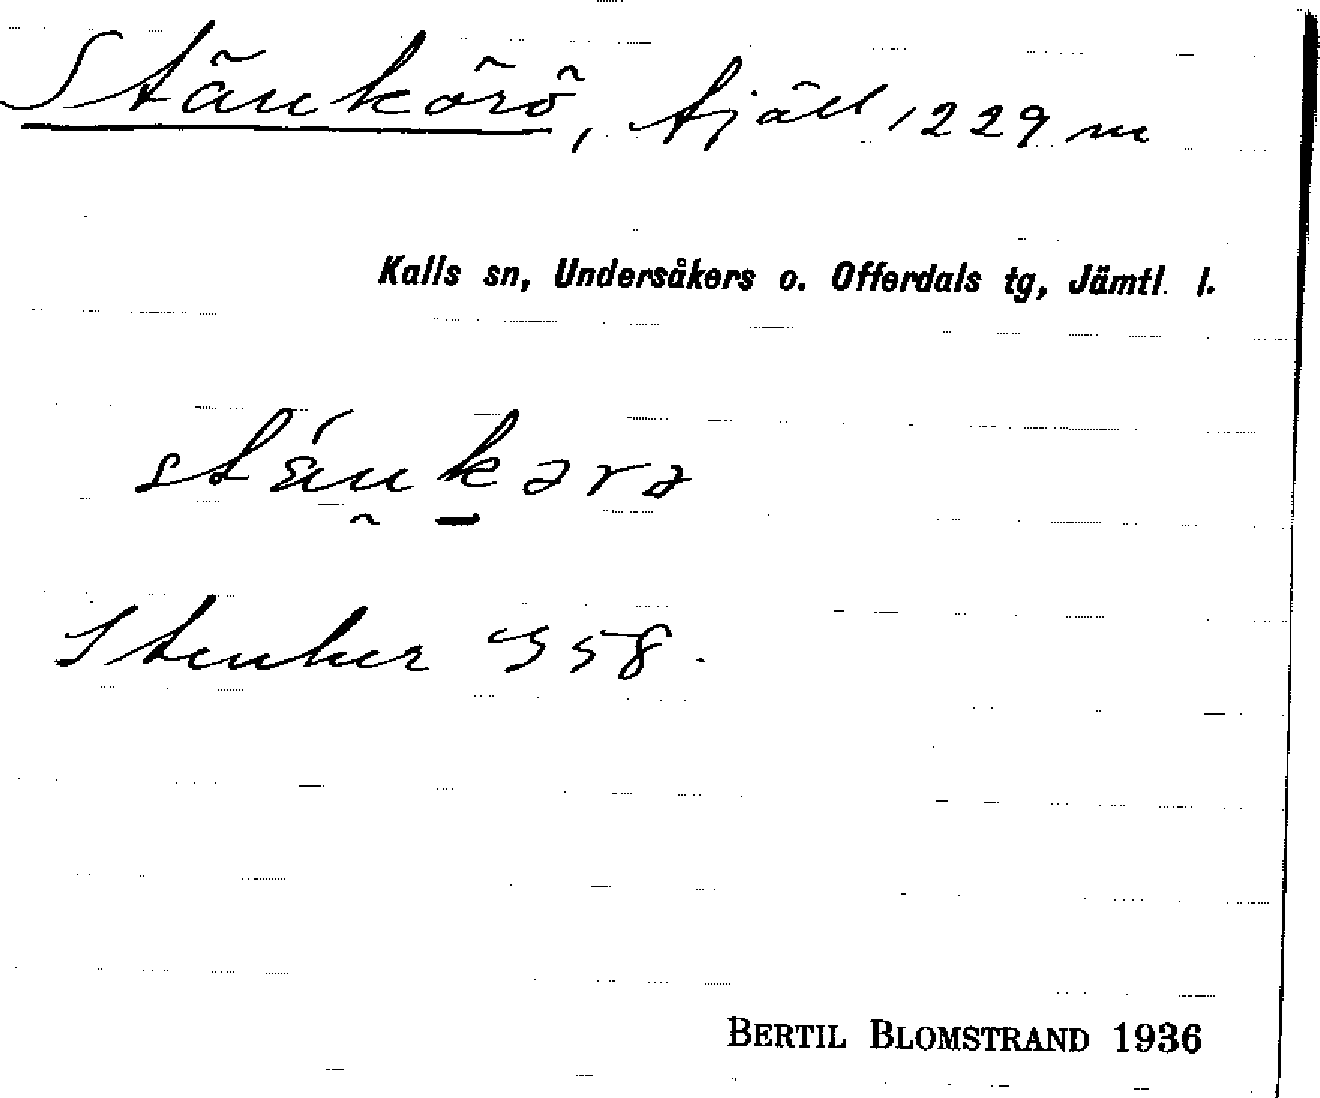 Stänkörö, fjäll, 1229 m
Kalls sn, Undersåkers o. Offerdals tg, Jämtl. l.
stäŋkərə
Stenker 358.
BERTIL BLOMSTRAND 1936